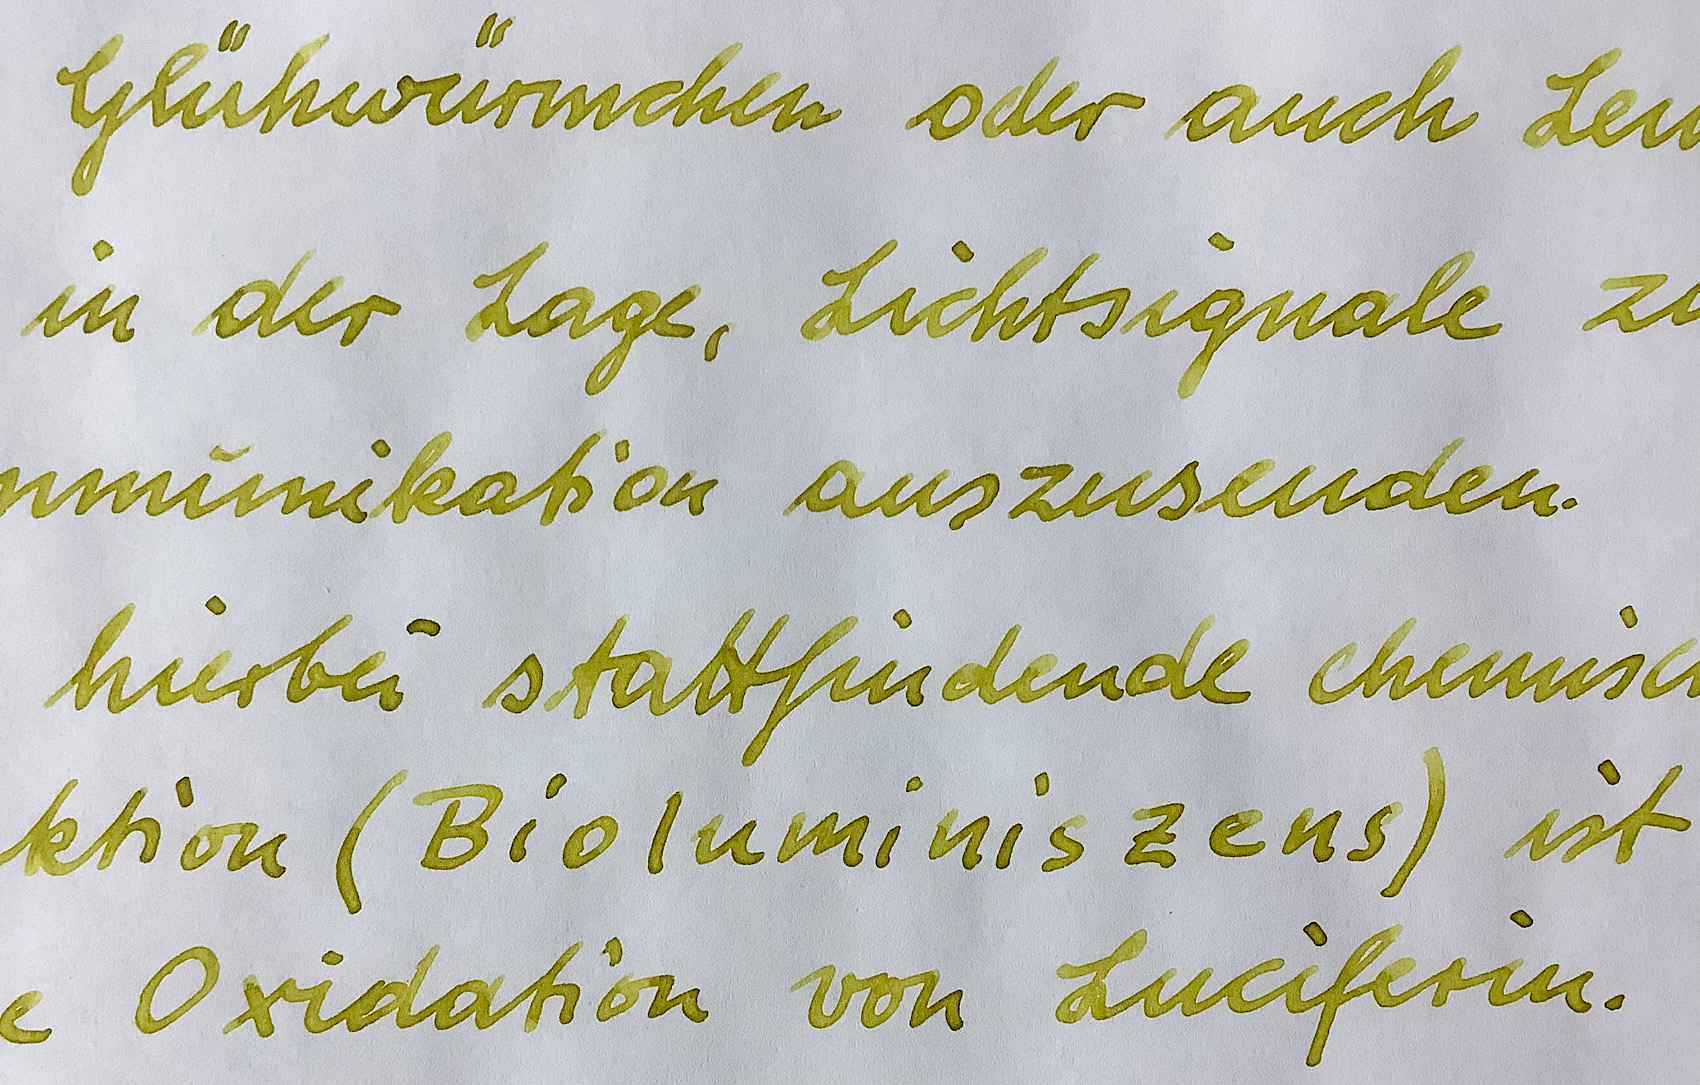 Glühwürmchen oder auch Leu
in der Lage, Lichtsignale zu
mmunikation auszusenden.
hierbei stattfindende chemisch
ktion (Biolumineszens) ist
e Oxidation von Luciferin.